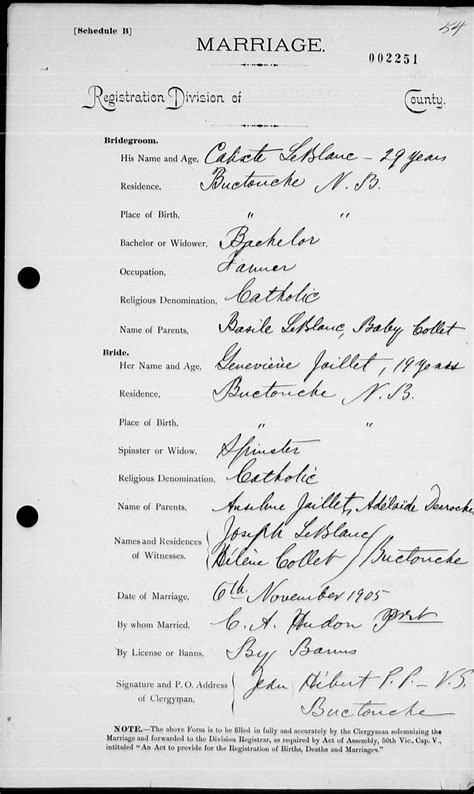 54
[Schedule B]
MARRIAGE.
002251
Registration Division of County.
Bridegroom.
His Name and Age, Calixte LeBlanc – 29 years
Residence, Buctouche N. B.
Place of Birth, " "
Bachelor or Widower, Bachelor
Occupation, Farmer
Religious Denomination, Catholic
Name of Parents, Basile LeBlanc, Baby Collet
Bride.
Her Name and Age, Geneviève Jaillet, 19 years
Residence, Buctouche N. B.
Place of Birth, " "
Spinster or Widow, Spinster
Religious Denomination, Catholic
Name of Parents, Anselme Jaillet, Adélaide
Names and Residences of Witnesses. Joseph LeBlanc
Hélène Collet / Buctouche
Date of Marriage, 6th November 1905
By whom Married, C. A. Hudon
By License or Banns, By Banns
Signature and P. O. Address of Clergyman, Jean Hébert P. P. – V. G.
Buctouche
NOTE.—The above Form is to be filled in fully and accurately by the Clergyman solemnizing the
Marriage and forwarded to the Division Registrar, as required by Act of Assembly, 50th Vic., Cap. V.,
intituled "An Act to provide for the Registration of Births, Deaths and Marriages."